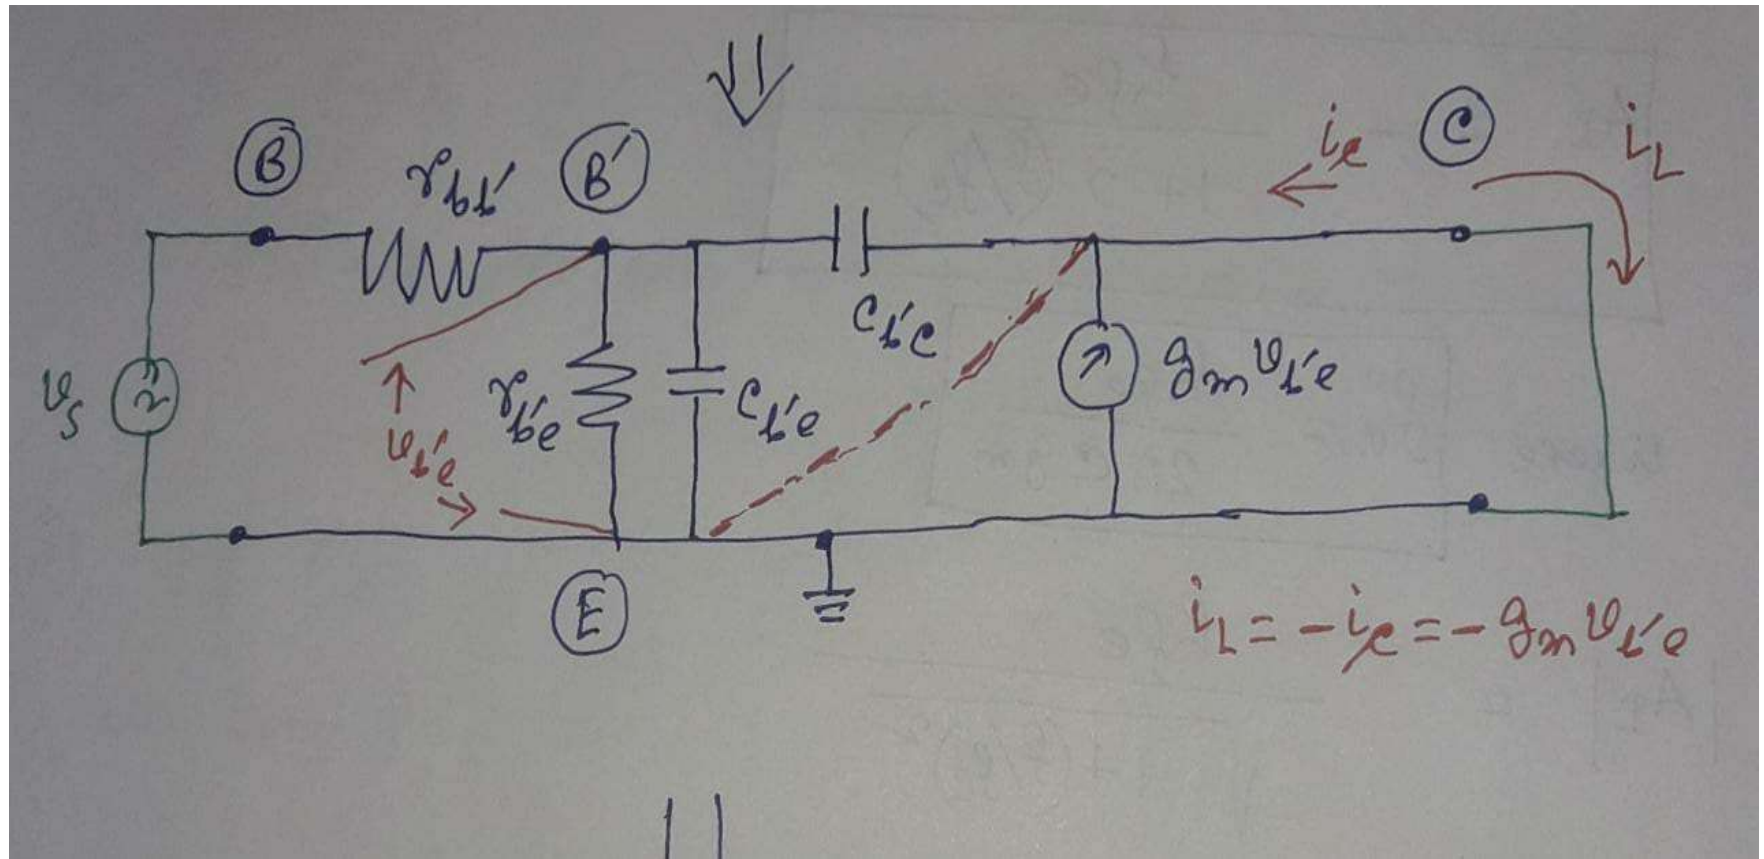 B
r_bb'
B'
i_c
C
i_L
v_s
v_b'e
r_b'e
C_b'e
C_b'c
g_m v_b'e
E
i_L = -i_c = -g_m v_b'e